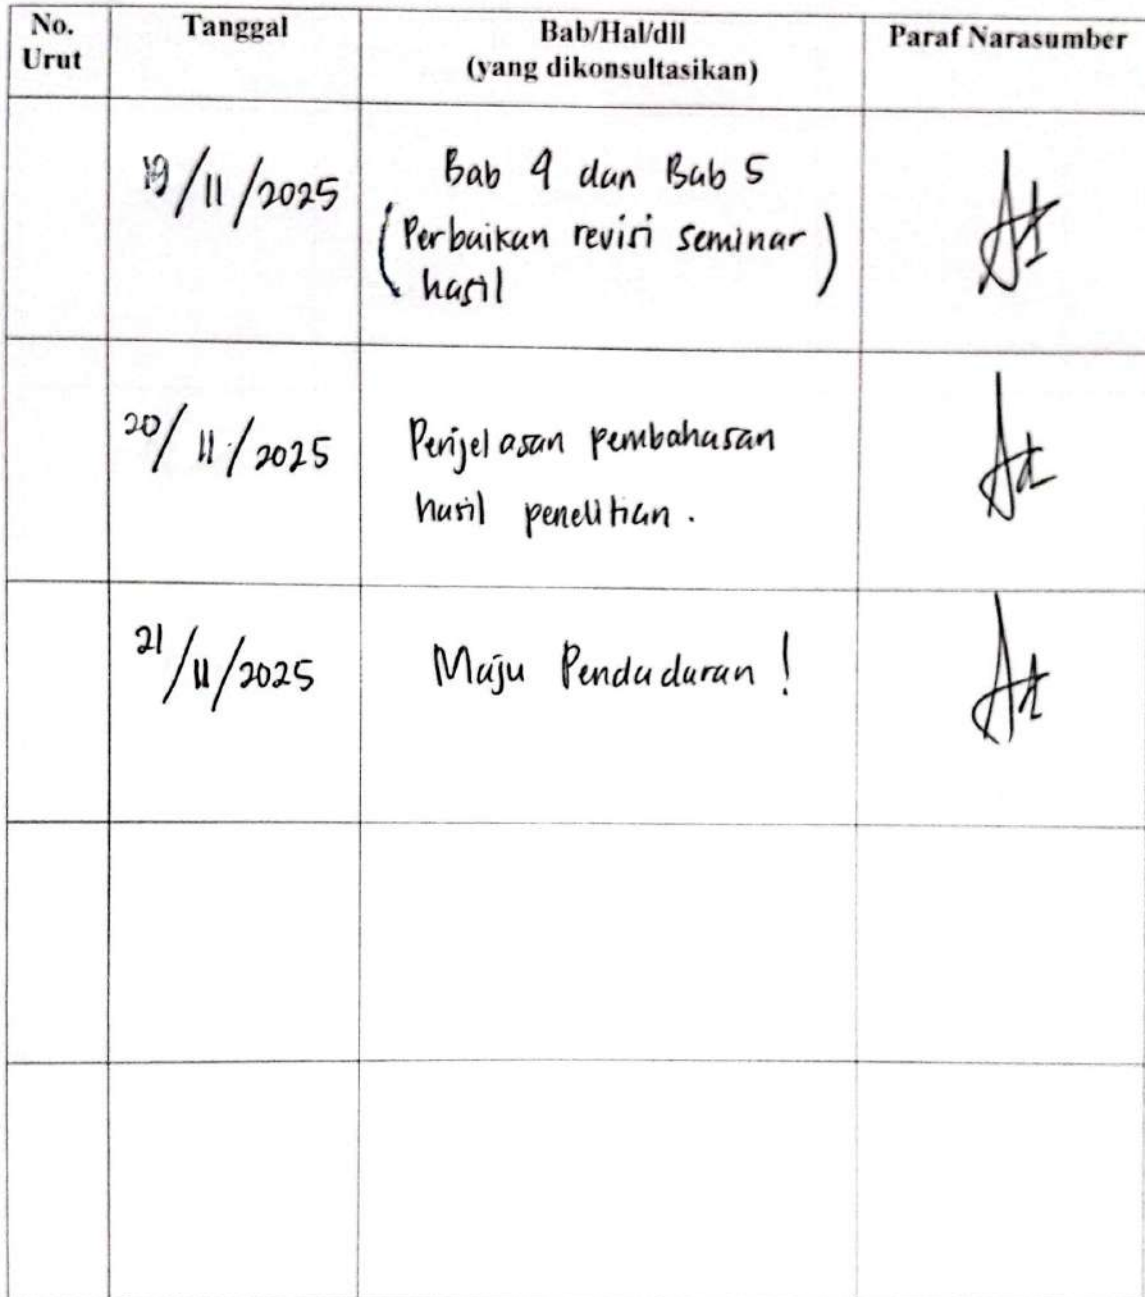 No. Urut
Tanggal
Bab/Hal/dll
(yang dikonsultasikan)
Paraf Narasumber
19/11/2025
Bab 4 dan Bab 5
(Perbaikan revisi seminar
hasil)
20/11/2025
Penjelasan pembahasan
hasil penelitian.
21/11/2025
Maju Pendadaran!